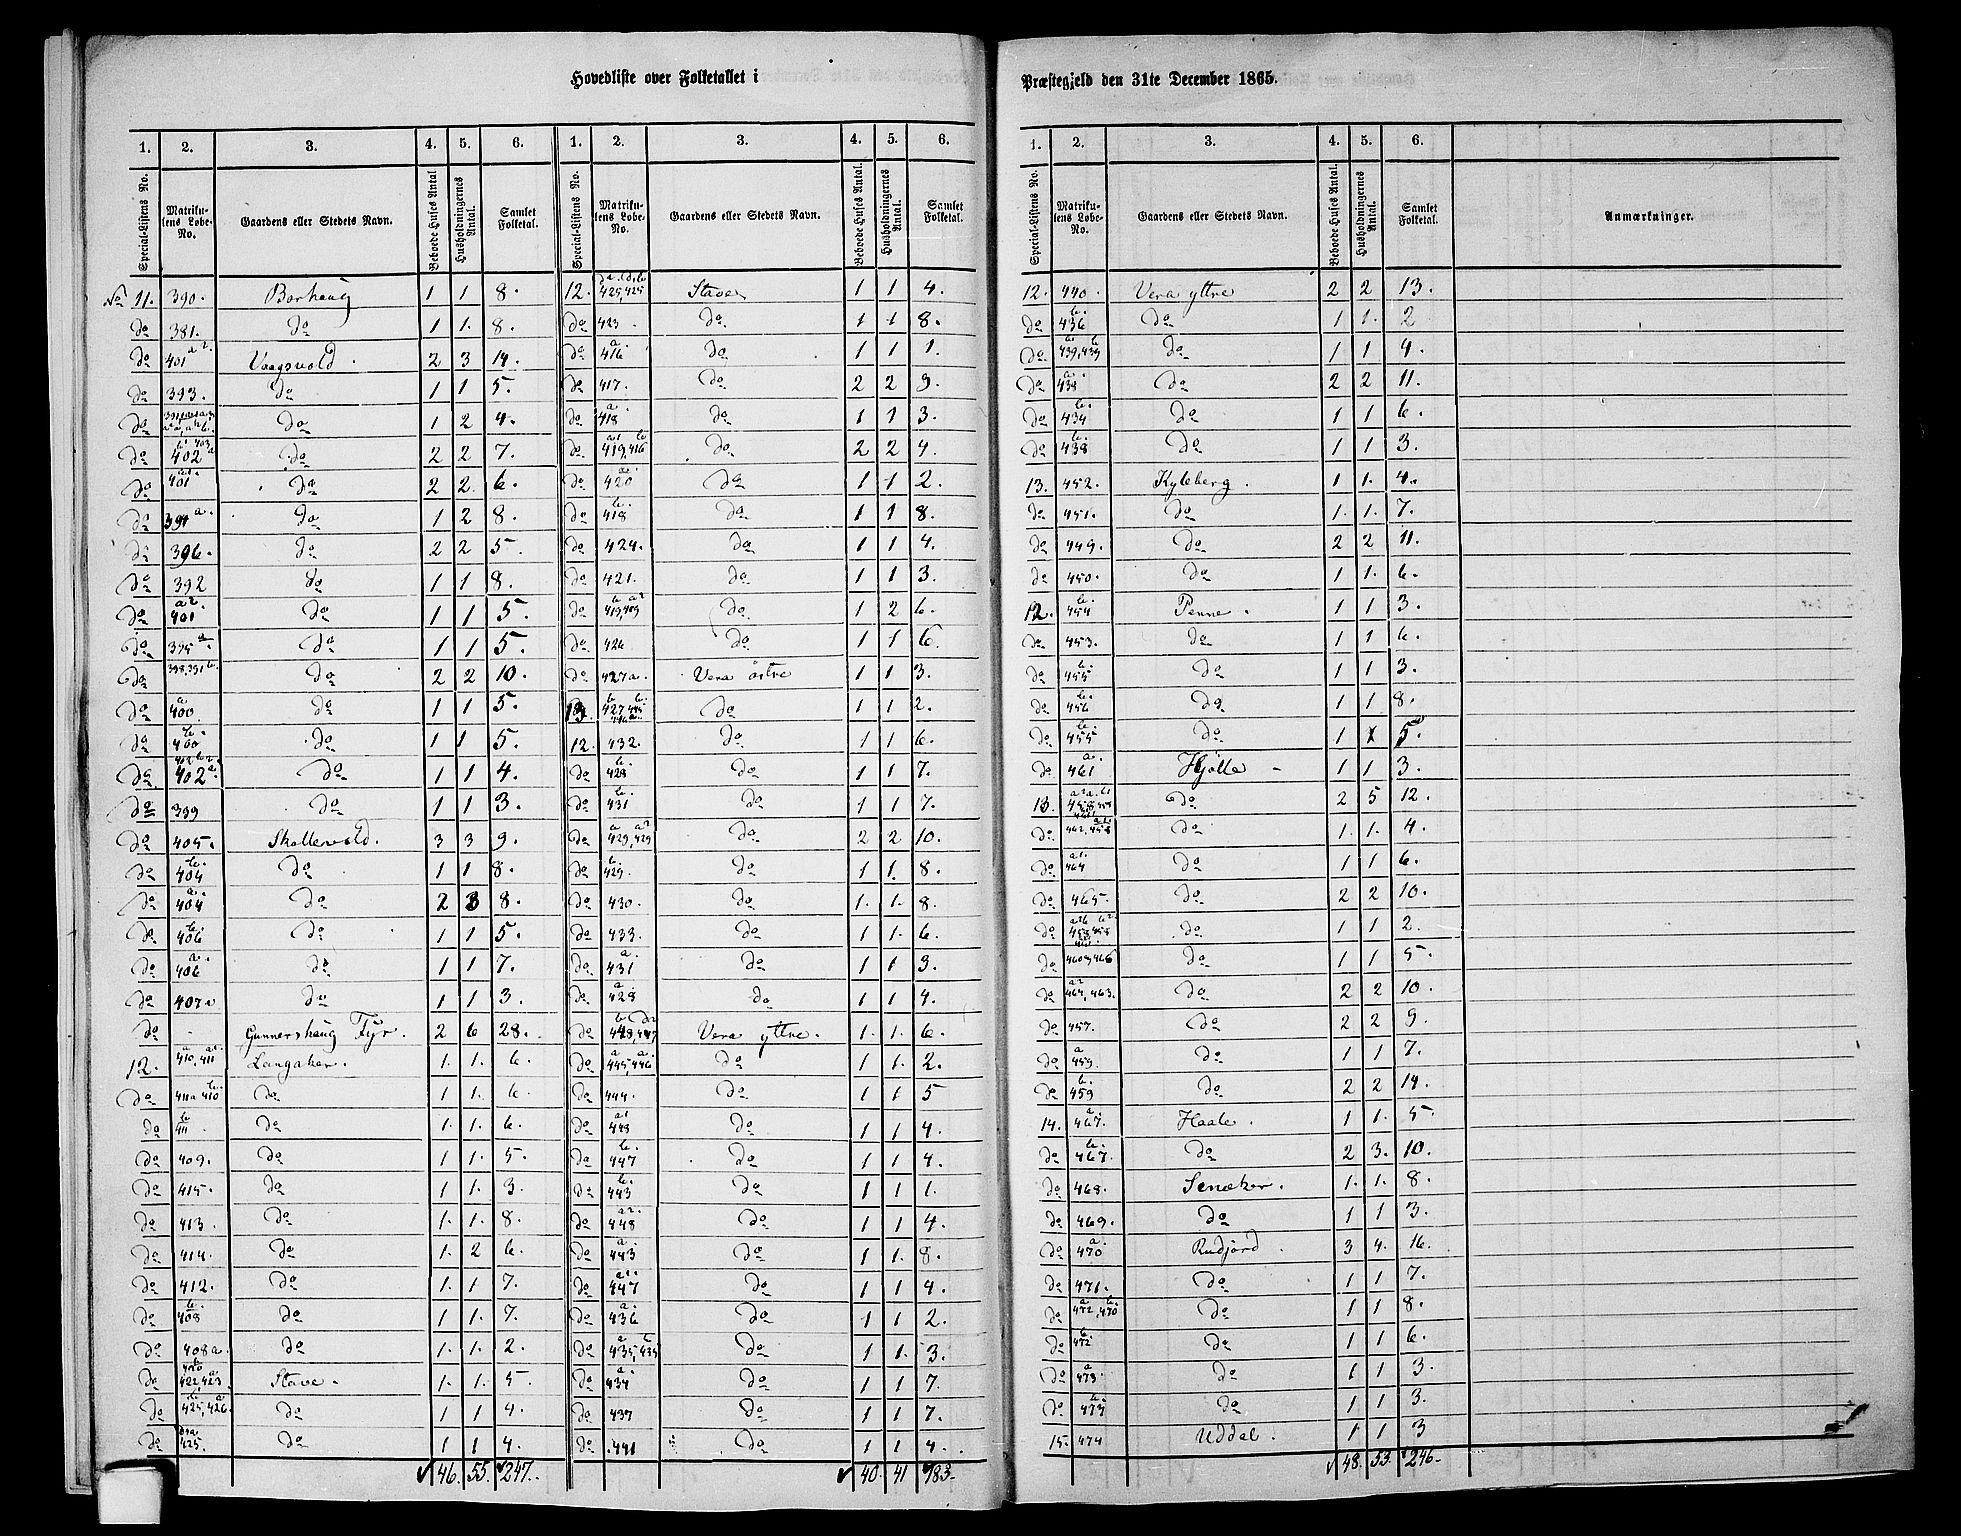 Hovedliste over Folketallet i Præstegjeld den 31te December 1865.
1. 2. 3. 4. 5. 6. 1. 2. 3. 4. 5. 6.
Special-Listens No. Matrikulens Løbe-No. Gaardens eller Stedets Navn. Beboede Huses Antal Husholdningernes Antal. Samlet Folketal. Special-Listens No. Matrikulens Løbe-No. Gaardens eller Stedets Navn. Beboede Huses Antal. Husholdningernes Antal. Samlet Folketal.
No 11. 390. Borhaug 1 1 8.
do 381. do 1 1. 8.
do 401 a2. Vaagsvold. 2 3 14.
do 393. do 1 1 5.
do do 1 2 4.
do 402 do 2 2 7.
do 401 do 2 2. 6.
do 391 a. do 1 2 8.
do 396. do 2 2 5.
do 392 do 1 1 8.
do 401 a2. do 1 1 5.
do 395 a. do 1 1 5.
do 398, 391 b. do 2 2 10.
do 400 a do 1 1 5.
do 400 b. do 1 1 5.
do 402 a. do 1 1 4.
do 399 do 1 1 3.
do 405. Skollevold. 3 3 9.
do 404 b. do 1 1 8.
do 404 a. do 2 3 8.
do 406 b. do 1 1 5.
do 406 a. do 1 1 7.
do 407a do 1 1 3.
do - Gunnershaug Fyr. 2 6 28.
12. 410, 411 Langaker. 1. 1. 6.
do 411a 410 b. do 1 1. 6.
do 411 b. do 1. 1. 6.
do 409. do 1 1. 5.
do 415. do 1 1. 3.
do 413. do 1. 1. 8.
do 414. do 1. 2 6.
do 412. do 1. 1 7.
do 408 b. do 1. 1. 7.
do 408a. do 1. 1. 2.
do 422, 423 Stave. 1. 1. 5.
do 425, 426 do 1 1 4.
do 425. do 1 1 4.
46. 55. 247.
12. 425, 425 Stave 1 1 4.
do 423. do 1 1 8.
do 416 a do 1 1 1.
do 417. do 2 2 9.
do 418 a. do 1 1 3.
do 419, 416 do 2 2 4.
do 420 do 1 1 2.
do 418 b. do 1 1 8.
do 424. do 1 1 4.
do 421. do 1 1 3.
do do 1 2 6.
do 426 do 1 1 6.
do 427a. Vera östre 1 1 3.
13. 427, 445 do 1 1 2.
12. 432. do 1 1 6.
do 428 b. do 1 1 7.
do 431 b. do 1 1 7.
do 429, 429 do 2 2 10.
do 429. b. do 1 1. 8.
do 430. do 1. 1. 8.
do 433. do 1 1. 6.
do 431 a. do 1 1 3.
do 428 a do 1 1 4.
do 448, 447 Vera yttre. 1. 1. 6.
do 445, 446 do 1 1. 2.
do 444. do 1 1 5
do 448 a1 do 1 1 4.
do 447 b. do 1 1 4.
do 443 b. do 1 1 1.
do 448 a2. do 1 1 4.
do 443 a. do 1 1. 8.
do 447 a1. do 1 1 4.
do 436 a. do 1 1 2.
do 435, 435 do 1 1. 3.
do 434 a. do 1 1 7.
do 437 do 1 1 7.
do 441 do 1 1 4.
40. 41 183.
1. 2. 3. 4. 5. 6.
Special-Listens No. Matrikulens Løbe-No. Gaardens eller Stedets Navn. Beboede Huses Antal. Husholdningernes Antal. Samlet Folketal. Anmærkninger.
12. 440. Vera yttre 2 2 13.
do 436 b. do 1 1. 2
do 439, 439 do 1 1 4.
do 438 a. do 2 2 11.
do 434 b. do 1 1 6.
do 438 b. do 1 1 3.
13. 452. Kyleberg. 1 1. 4.
do 451. do 1. 1. 7.
do 449. do 2 2 11.
do 450. do 1 1. 6.
12. 454 b. Penne. 1 1 3.
do 453. do 1 1 6.
do 455 b. do 1 1 3.
do 456 b. do 1 1 8.
do 455 b. do 1 1 5.
do 461 a. Hjölle - 1 1 3.
13. 458, 458 do 2 5 12.
do 462, 458 do 1. 1. 4.
do 464 a1. do 1 1 6.
do 465. do 2 2 10.
do 458, 458 do 1 1 2.
do 460, 466 do 1 1 5.
do 464, 463. do 2 2 10.
do 457. do 2 2 9.
do 459. a do 1 1 7.
do 459 b. do 2 2 14.
14. 467. a Haale. 1 1. 5.
do 467. b. do 2 3. 10.
do 468. Senaker. 1. 1. 8.
do 469. do 1 1 3.
do 470 a. Rudjord. 3 4. 16.
do 471. do 1 1 7.
do 472, 470 do 1 1 8.
do 472 b do 1 1 6.
do 473 a do 1 1 3.
do 473 b do 1 1 3.
15. 474 Uddal. 1 1 3
48. 53. 246.